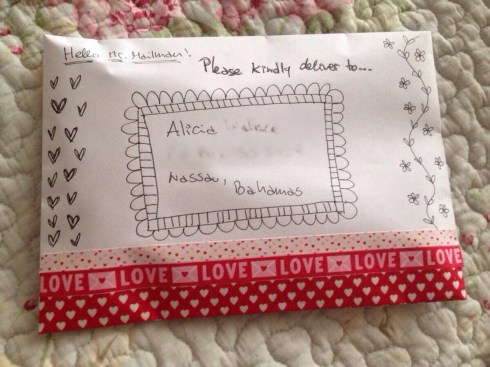 Hello Mr. Mailman!
Please kindly deliver to...
Alicia
Nassau, Bahamas
LOVE LOVE LOVE LOVE LOVE LOVE